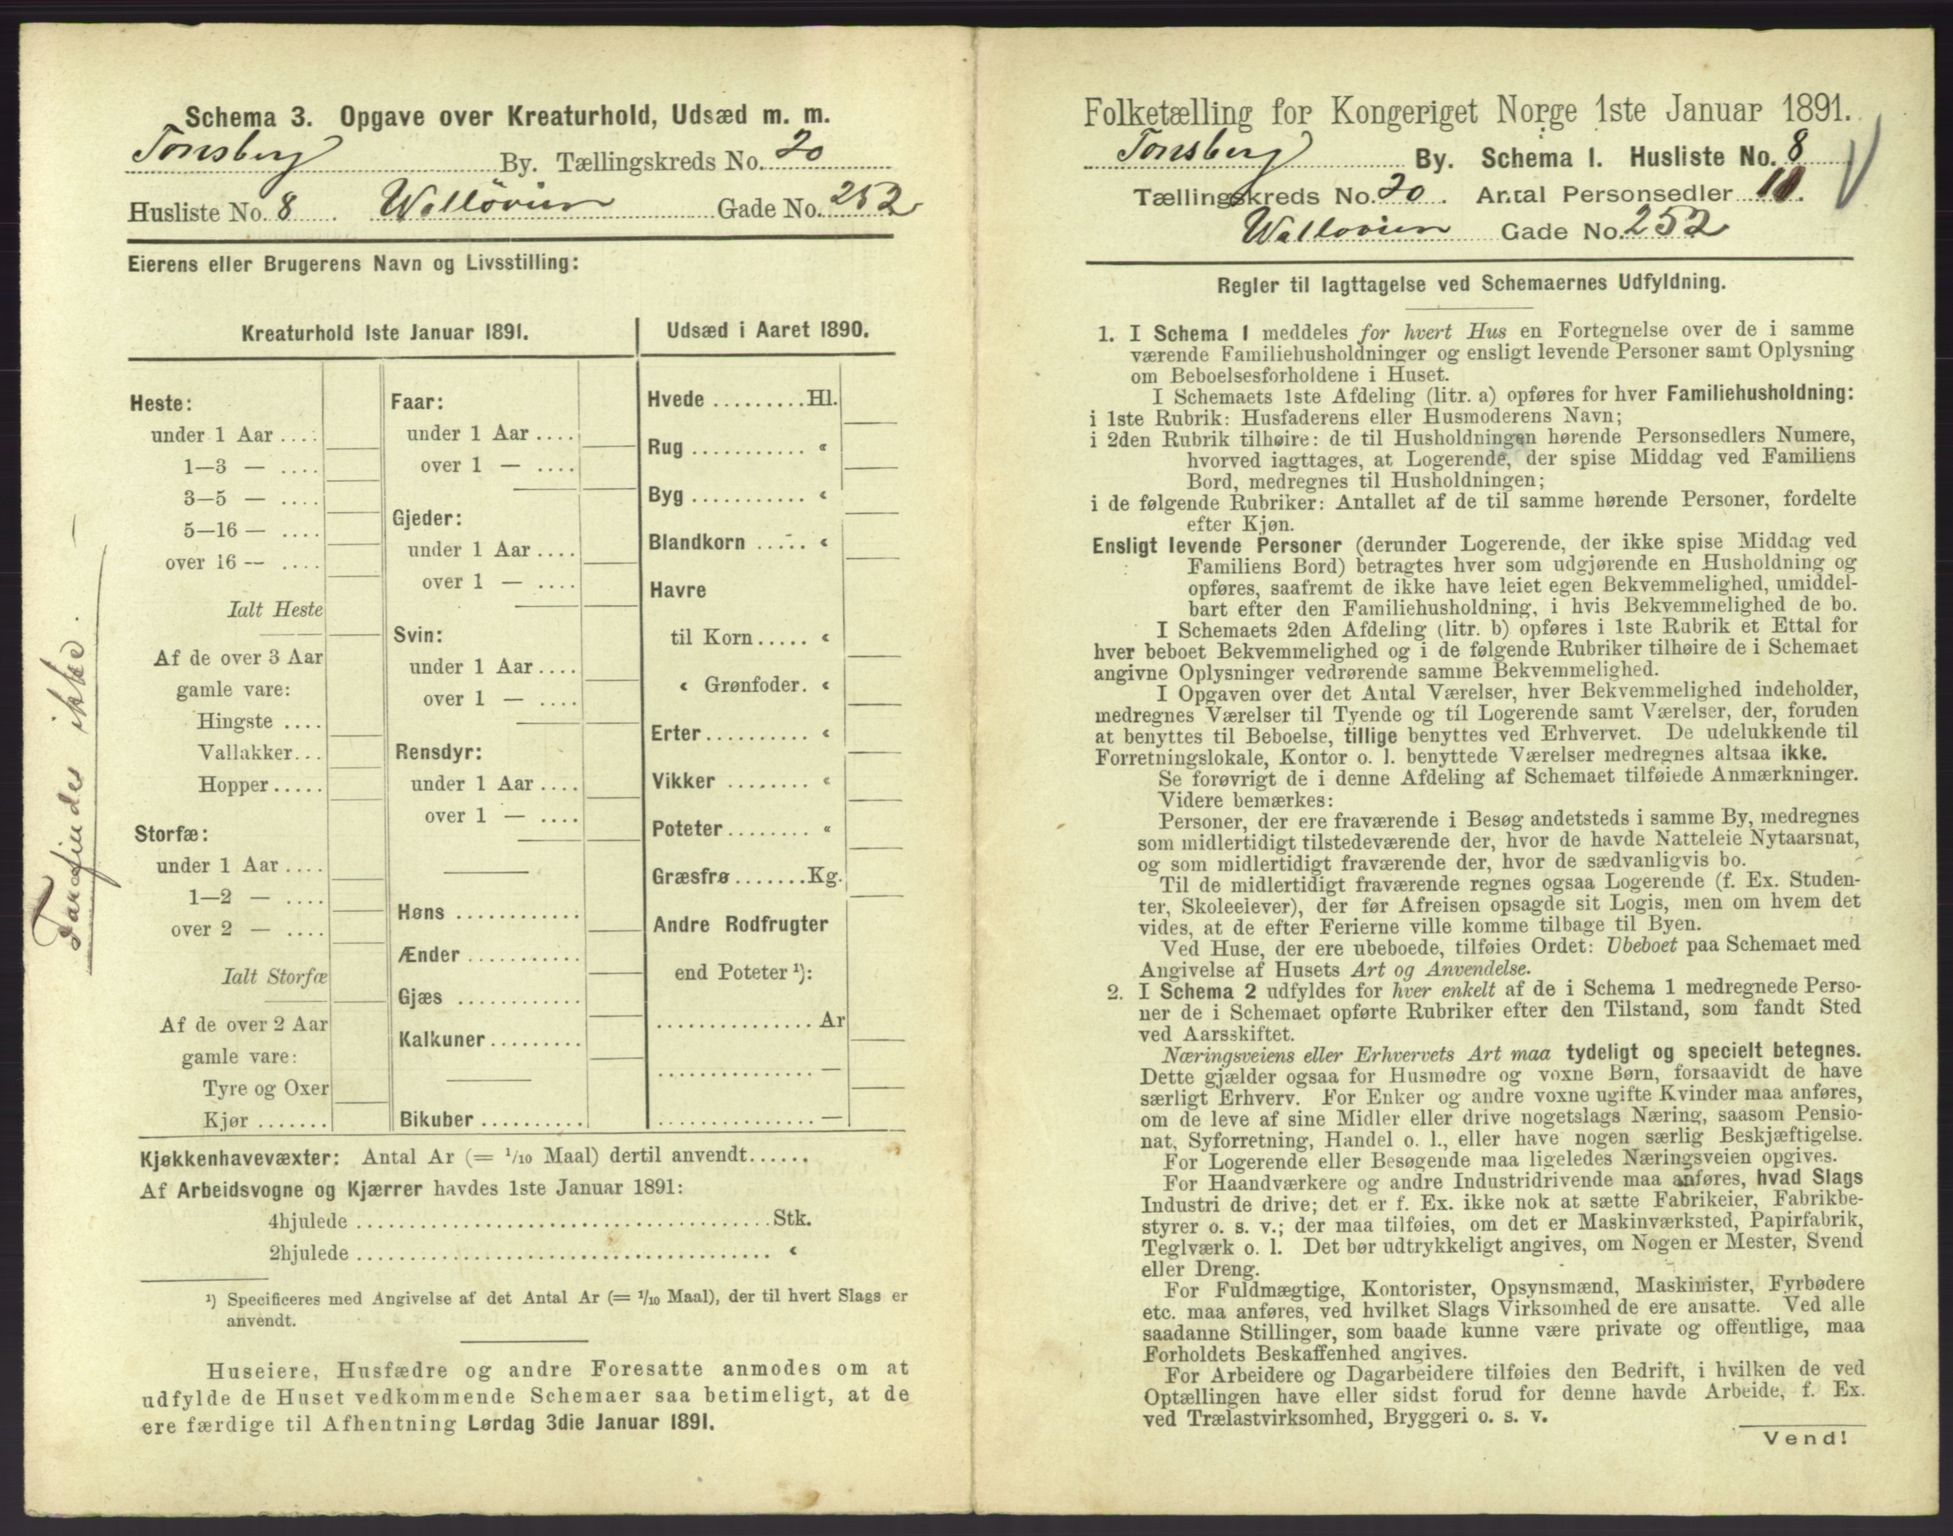 Schema 3. Opgave over Kreaturhold, Udsæd m. m.
Tønsberg By. Tællingskreds No. 20
Husliste No. 8 Walløvien Gade No. 252
Eierens eller Brugerens Navn og Livsstilling:
Kreaturhold 1ste Januar 1891.
Heste:
under 1 Aar ....
1—3 — ....
3—5 — ....
5—16 — ....
over 16 — ....
Ialt Heste
Af de over 3 Aar
gamle vare:
Hingste ....
Vallakker...
Hopper.....
Storfæ:
under 1 Aar ....
1—2 — ....
over 2 — ....
Ialt Storfæ
Af de over 2 Aar
gamle vare:
Tyre og Oxer
Kjør .......
Faar:
under 1 Aar ....
over 1 — ....
Gjeder:
under 1 Aar ....
over 1 — ....
Svin:
under 1 Aar ....
over 1 — ....
Rensdyr:
under 1 Aar ....
over 1 — ....
Høns ...........
Ænder ..........
Gjæs ...........
Kalkuner........
Bikuber .........
Udsæd i Aaret 1890.
Hvede .........Hl.
Rug ........... «
Byg ........... «
Blandkorn ..... «
Havre
til Korn..... «
« Grønfoder. «
Erter.......... «
Vikker ........ «
Poteter........ «
Græsfrø.......Kg.
Andre Rodfrugter
end Poteter ¹):
............... Ar
............... —
............... —
Kjøkkenhavevæxter: Antal Ar (= 1/10 Maal) dertil anvendt......
Af Arbeidsvogne og Kjærrer havdes 1ste Januar 1891:
4hjulede ........................................Stk.
2hjulede ........................................ «
¹) Specificeres med Angivelse af det Antal Ar (= 1/10 Maal), der til hvert Slags er
anvendt.
Huseiere, Husfædre og andre Foresatte anmodes om at
udfylde de Huset vedkommende Schemaer saa betimeligt, at de
ere færdige til Afhentning Lørdag 3die Januar 1891.
Farefindes ikke. —
Folketælling for Kongeriget Norge 1ste Januar 1891.
Tønsberg By. Schema 1. Husliste No. 8
Tællingskreds No. 20. Antal Personsedler 10.
Walløvien Gade No. 252
Regler til Iagttagelse ved Schemaernes Udfyldning.
1. I Schema 1 meddeles for hvert Hus en Fortegnelse over de i samme
værende Familiehusholdninger og ensligt levende Personer samt Oplysning
om Beboelsesforholdene i Huset.
I Schemaets 1ste Afdeling (litr. a) opføres for hver Familiehusholdning:
i 1ste Rubrik: Husfaderens eller Husmoderens Navn;
i 2den Rubrik tilhøire: de til Husholdningen hørende Personsedlers Numere,
hvorved iagttages, at Logerende, der spise Middag ved Familiens
Bord, medregnes til Husholdningen;
i de følgende Rubriker: Antallet af de til samme hørende Personer, fordelte
efter Kjøn.
Ensligt levende Personer (derunder Logerende, der ikke spise Middag ved
Familiens Bord) betragtes hver som udgjørende en Husholdning og
opføres, saafremt de ikke have leiet egen Bekvemmelighed, umiddel-
bart efter den Familiehusholdning, i hvis Bekvemmelighed de bo.
I Schemaets 2den Afdeling (litr. b) opføres i 1ste Rubrik et Ettal for
hver beboet Bekvemmelighed og i de følgende Rubriker tilhøire de i Schemaet
angivne Oplysninger vedrørende samme Bekvemmelighed.
I Opgaven over det Antal Værelser, hver Bekvemmelighed indeholder,
medregnes Værelser til Tyende og til Logerende samt Værelser, der, foruden
at benyttes til Beboelse, tillige benyttes ved Erhvervet. De udelukkende til
Forretningslokale, Kontor o. l. benyttede Værelser medregnes altsaa ikke.
Se forøvrigt de i denne Afdeling af Schemaet tilføiede Anmærkninger.
Videre bemærkes:
Personer, der ere fraværende i Besøg andetsteds i samme By, medregnes
som midlertidigt tilstedeværende der, hvor de havde Natteleie Nytaarsnat,
og som midlertidigt fraværende der, hvor de sædvanligvis bo.
Til de midlertidigt fraværende regnes ogsaa Logerende (f. Ex. Studen-
ter, Skoleelever), der før Afreisen opsagde sit Logis, men om hvem det
vides, at de efter Ferierne ville komme tilbage til Byen.
Ved Huse, der ere ubeboede, tilføies Ordet: Ubeboet paa Schemaet med
Angivelse af Husets Art og Anvendelse.
2. I Schema 2 udfyldes for hver enkelt af de i Schema 1 medregnede Perso-
ner de i Schemaet opførte Rubriker efter den Tilstand, som fandt Sted
ved Aarsskiftet.
Næringsveiens eller Erhvervets Art maa tydeligt og specielt betegnes.
Dette gjælder ogsaa for Husmødre og voxne Børn, forsaavidt de have
særligt Erhverv. For Enker og andre voxne ugifte Kvinder maa anføres,
om de leve af sine Midler eller drive nogetslags Næring, saasom Pensio-
nat, Syforretning, Handel o. l., eller have nogen særlig Beskjæftigelse.
For Logerende eller Besøgende maa ligeledes Næringsveien opgives.
For Haandværkere og andre Industridrivende maa anføres, hvad Slags
Industri de drive; det er f. Ex. ikke nok at sætte Fabrikeier, Fabrikbe-
styrer o. s. v.; der maa tilføies, om det er Maskinværksted, Papirfabrik,
Teglværk o. l. Det bør udtrykkeligt angives, om Nogen er Mester, Svend
eller Dreng.
For Fuldmægtige, Kontorister, Opsynsmænd, Maskinister, Fyrbødere
etc. maa anføres, ved hvilket Slags Virksomhed de ere ansatte. Ved alle
saadanne Stillinger, som baade kunne være private og offentlige, maa
Forholdets Beskaffenhed angives.
For Arbeidere og Dagarbeidere tilføies den Bedrift, i hvilken de ved
Optællingen have eller sidst forud for denne havde Arbeide, f. Ex.
ved Trælastvirksomhed, Bryggeri o. s. v.
Vend!